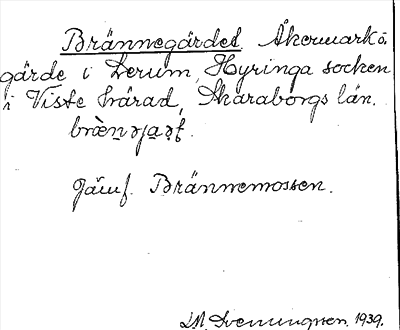 Brännegärdet. Åkermark å
gärde i Lerum, Hyringa socken
i Viste härad, Skaraborgs län.
Jämf. Brännemossen.
Sveningsson 1939.